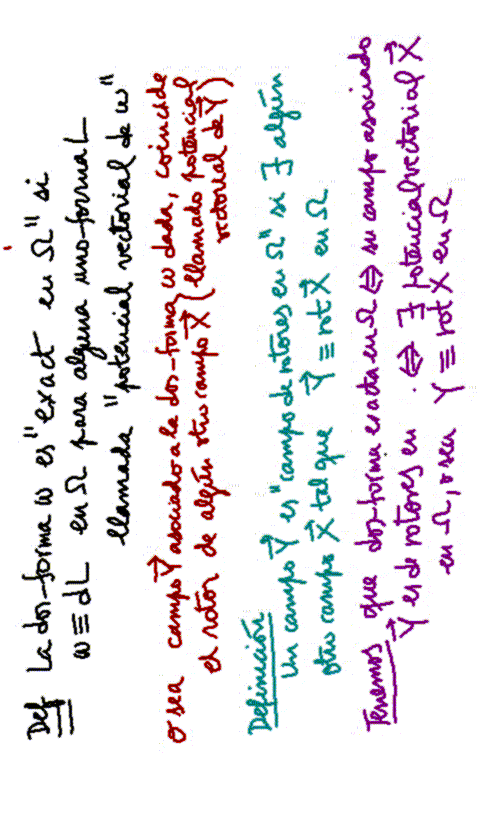 Def La dos-forma ω es "exact en Ω" si
ω ≡ dL en Ω para alguna uno-forma L
llamada "potencial vectorial de ω"
o sea campo Y⃗ asociado a la dos-forma ω dada, coincide
el rotor de algún otro campo X⃗ (llamado potencial
vectorial de Y⃗)
Definición
Un campo Y⃗ es "campo de rotores en Ω" si ∃ algún
otro campo X⃗ tal que Y⃗ ≡ rot X⃗ en Ω
Tenemos que dos-forma exacta en Ω ⇔ su campo asociado
Y⃗ es de rotores en . ⇔ ∃ potencial vectorial X⃗
en Ω, o sea Y ≡ rot X en Ω